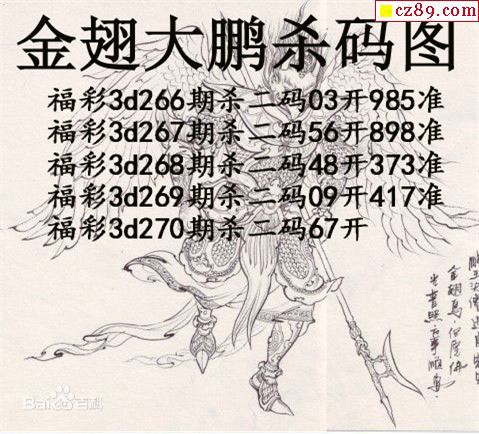 cz89.com
金翅大鹏杀码图
福彩3d266期杀二码03开985准
福彩3d267期杀二码56开898准
福彩3d268期杀二码48开373准
福彩3d269期杀二码09开417准
福彩3d270期杀二码67开
金翅鸟
Baidu百科